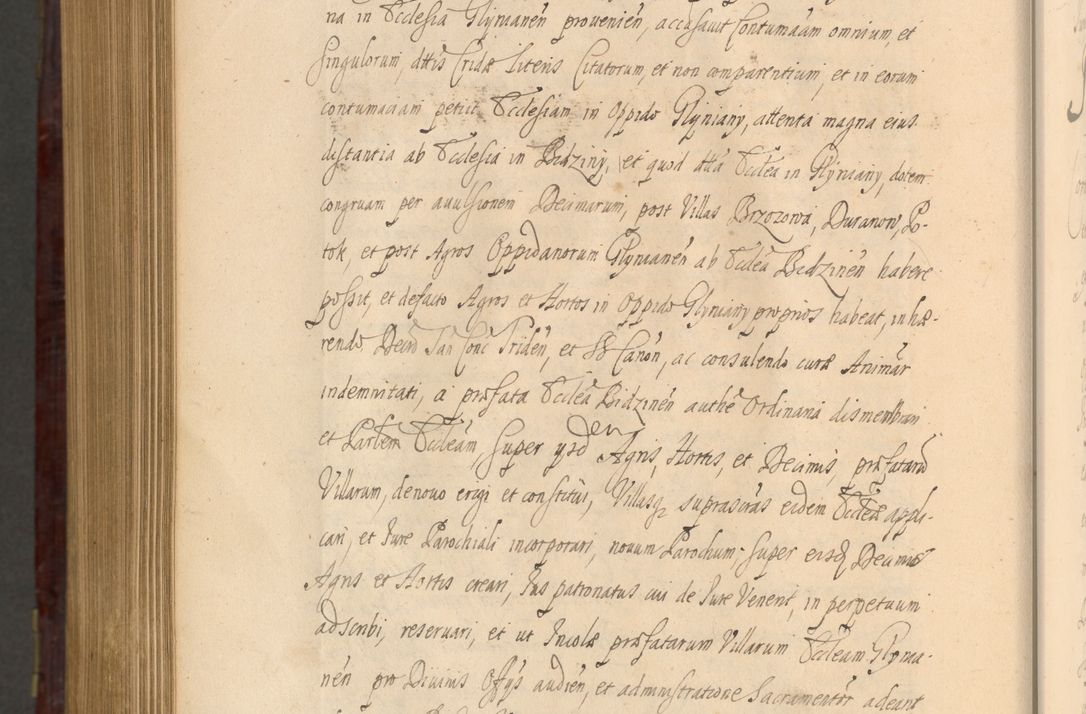 na in Ecclesia Glynianen̄ provenien̄, accusavit contumaciam omnium, et
singulorum, d̄ttis Cridæ Literis Citatorum, et non comparentium, et in eorum
contumaciam petiit Ecclesiam in Oppido Glyniany, attenta magna eius
distantia ab Ecclesia in Bidziny, et quod d̄tta Ecclēa in Glyniany, dotem
congruam per avulsionem Decimarum, post Villas Brzozowa, Duranow, Po-
tok, et post Agros Oppidanorum Glynianen̄ ab Ecclēa Bidzinen̄ habere
possit, et defacto Agros et Hortos in Oppido Glyniany proprios habeat, inhæ-
rendo Decro San Conc Triden̄, et SS Canon̄, ac consulendo curæ Animar
indemnitati, a præfata Ecclēa Bidzinen̄ authē Ordinaria dismembrari
et Parlem Eccleām, super ysdem Agris, Hortis, et Decimis, præfatarū
Villarum, denovo erigi et constitui, Villasq suprascrās eidem Ecclēæ appli-
cari, et Jure Parochiali incorporari, novum Parochum, super eisd Decimis
Agris et Hortis creari, Jus patronatus cui de Jure Venent, in perpetuum
adscribi, reservari, et ut Incolæ præfatarum Villarum Eccleām Glynia-
nen̄ pro Divinis Offys audien̄, et administratione Sacramentor̄ adeant